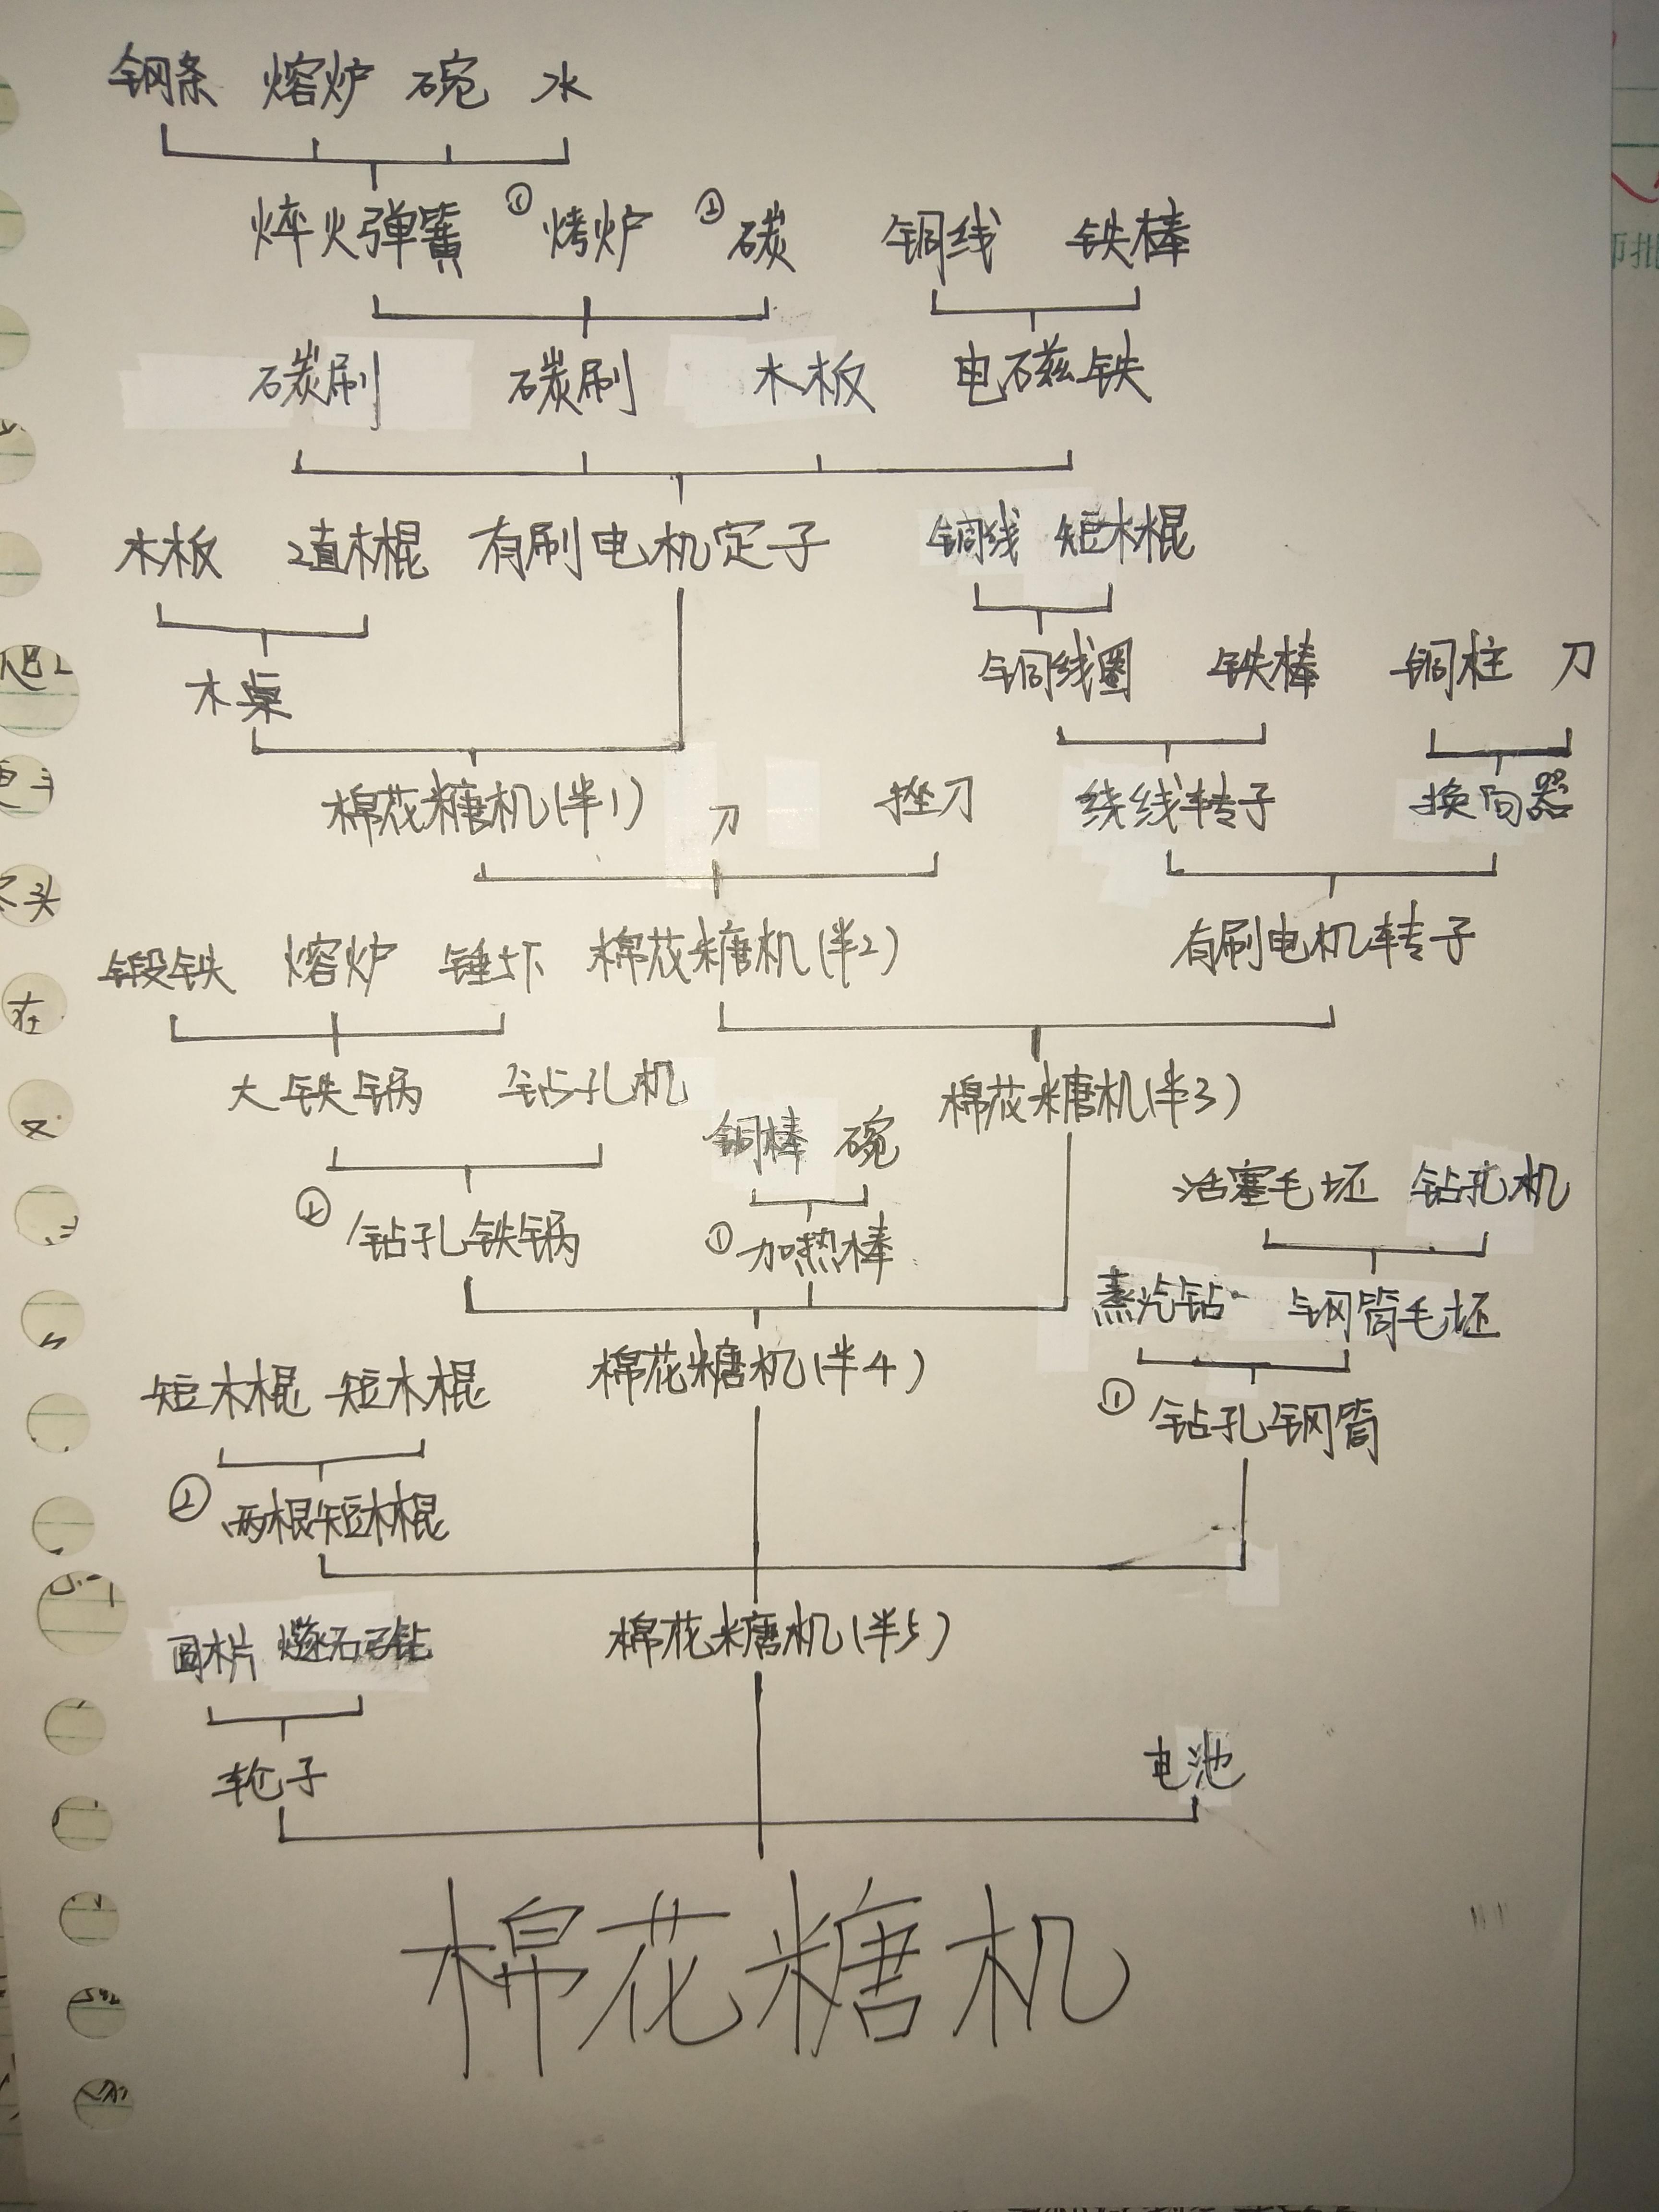 钢条 熔炉 碗 水
焠火弹簧 ①烤炉 ②碳 铜线 铁棒
碳刷 碳刷 木板 电磁铁
木板 2直木棍 有刷电机定子 铜线 短木棍
木桌 铜线圈 铁棒 铜柱 刀
棉花糖机(半1) 刀 挫刀 绕线转子 换向器
锻铁 熔炉 锤坏 棉花糖机(半2) 有刷电机转子
大铁锅 钻孔机 棉花糖机(半3)
铜棒 碗 活塞毛坯 钻孔机
②钻孔铁锅 ①加热棒 蒸汽钻 钢筒毛坯
短木棍 短木棍 棉花糖机(半4) ①钻孔钢筒
②两根短木棍
圆木片 燧石弓钻 棉花糖机(半5)
轮子 电池
棉花糖机